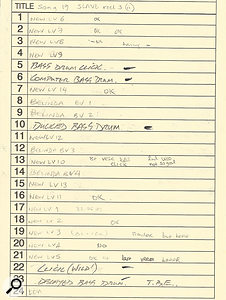 TITLE SONG 19 SLAVE REEL 3
1 NEW LV 6 OK
2 NEW LV 7 OK OK
3 NEW LV 8
4 NEW LV 9
5 BASS DRUM CLICK.
6 COMPUTER BASS DRUM.
7 NEW LV 14 OK
8 BELINDA BV 1
9 BELINDA BV 2
10 DUCKED BASS DRUM
11 NEW LV 12
12 BELINDA BV 3
13 NEW LV 10
14 BELINDA BV 4
15 NEW LV 13
16 NEW LV 11 OK
17 NEW LV 1
18 NEW LV 2 OK
19 NEW LV 3
20 NEW LV 4
21 NEW LV 5 OK LAST VERSE
22 CLICK (WILD!)
23 DELAYED BASS DRUM. TAPE.
24